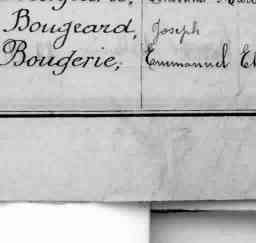 Bougeard, Joseph
Bougerie, Emmanuel